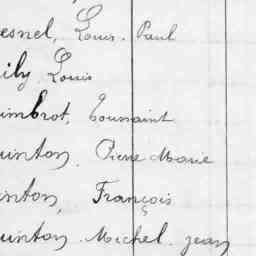 esnel, Louis. Paul
ily Louis
umbrot, Toussaint
uinton, Pierre Marie
inton, François
uinton. Michel. jean